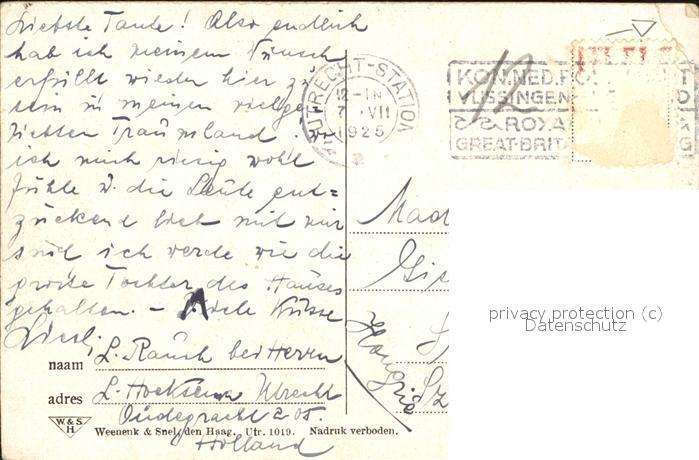 Liebste Tante! Also endlich
hab ich meinem Wunsch
erfüllt wieder hier zu
sein in meinem vielge-
liebten Traumland.
ich mich riesig wohl
fühle u. die Leute ent=
zückend lieb mit mir
sind ich werde wie die
große Tochter des Hauses
gehalten. – Viele Küsse
Liesl.
naam L. Rausch bei Herrn
adres L. Hoeksema Utrecht
Oudegracht 205
Holland
W. & S.
H.
Weenenk & Snel, den Haag. Utr. 1019. Nadruk verboden.
UTRECHT-STATION
12-1N
7 VII
1925
KON.NED.PO
VLISSINGEN
ROYA
GREAT-BRIT
Mad
Gis
Sz
Hongrie
privacy protection (c)
Datenschutz